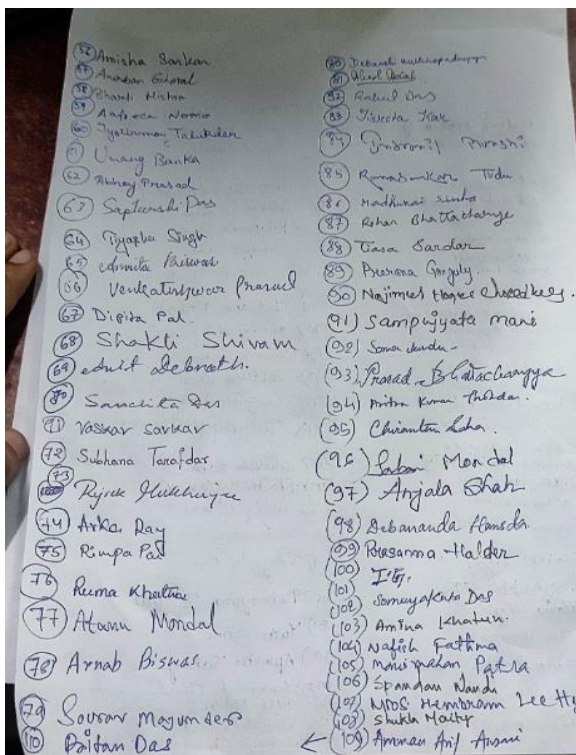 56 Amisha Sarkar
57 Anirban Ghoral
58 Bharati Mishra
59 Aafreca
60 Jyotirmoy Talukdar
61 Umang Banka
62 Abhay Prasad
63 Saptarshi Das
64 Singh
65 Amrita Biswas
66 Venkateshwar Prasad
67 Dipita Pal
68 Shakti Shivam
69 Amit Debnath.
70 Sanchita Das
71 Vaskar Sarkar
72 Subhana Tarafdar
73 Mukherjee
74 Arka Ray
75 Rimpa Pal
76 Ruma Khatua
77 Atanu Mondal
78 Arnab Biswas
79 Sourav Majumder
110 Paltan Das
80 Debarati Mukhopadhyay
81
82 Rahul Das
83 Kar
84 Indranil Munshi
85 Ramasankar Tudu
86 Madhumai Sinha
87 Rohan Bhattacharye
88 Tiasa Sardar
89 Prerana Ganguly.
90 Najimul Haque
(91) Sampujyata Mani
(92) Soma Kundu
(93) Prasad Bhattacharyya
(94) Aritra Kumar
(95) Chirantan Saha.
(96) Mondal
(97) Anjala Shah
(98) Debananda Hansda
(99) Prasanna Halder
(100)
(101)
(102) Somyakanta Das
(103) Amina Khatun.
(104) Nafish Fathma
(105) Patra
(106) Spandan Nandi
(107) Hembram
(108) Shukla Maity
(109) Amman Arif Ansari